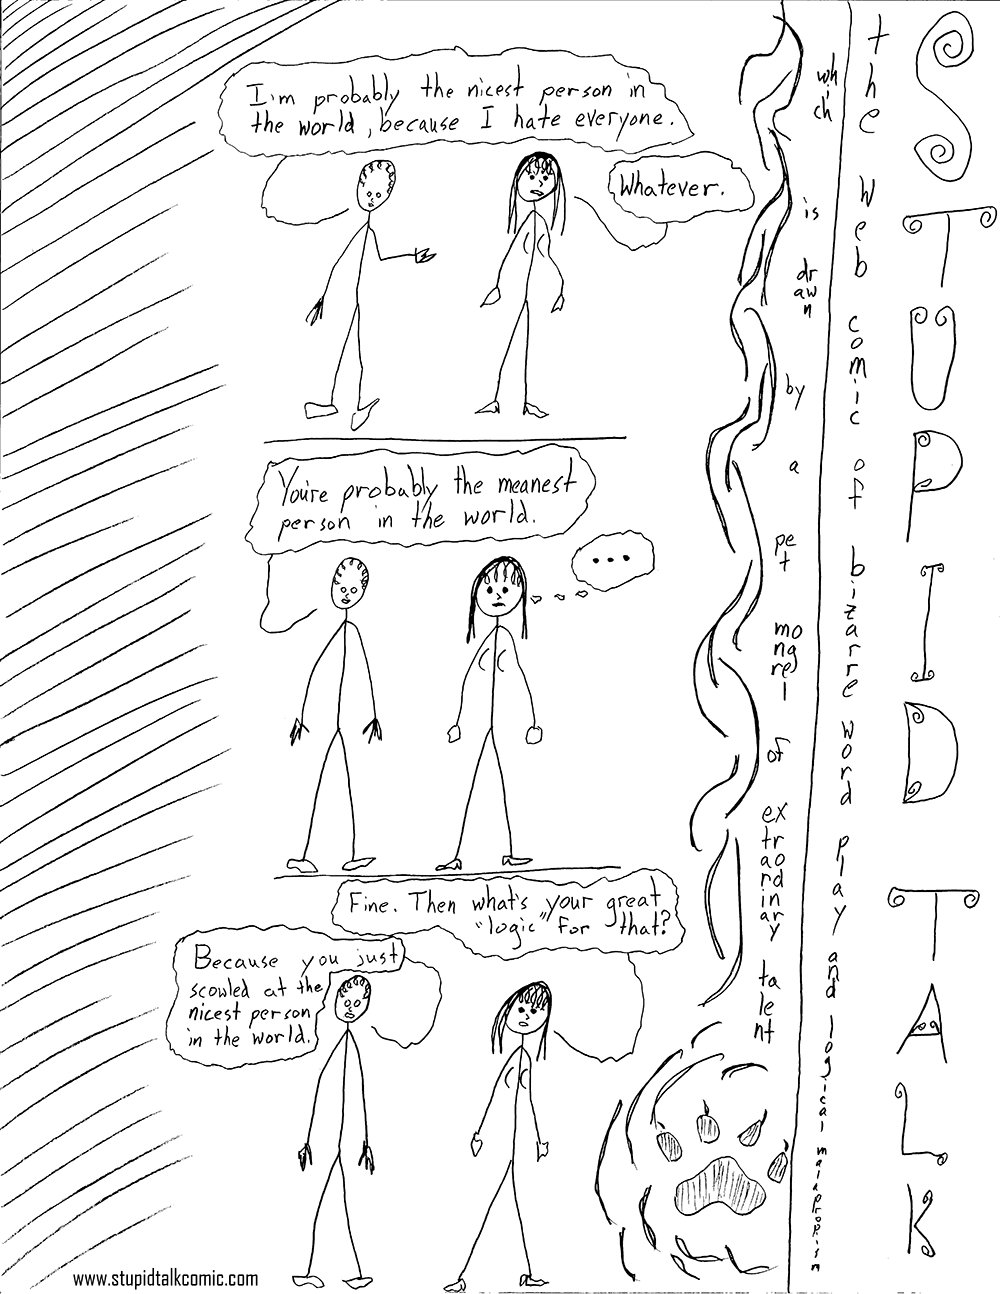 I'm probably the nicest person in
the world, because I hate everyone.
Whatever.
You're probably the meanest
person in the world.
...
Fine. Then what's your great
"logic" for that?
Because you just
scowled at the
nicest person
in the world.
www.stupidtalkcomic.com
which is drawn by a pet mongrel of extraordinary talent
the web comic of bizarre word play and logical malapropism
STUPID TALK